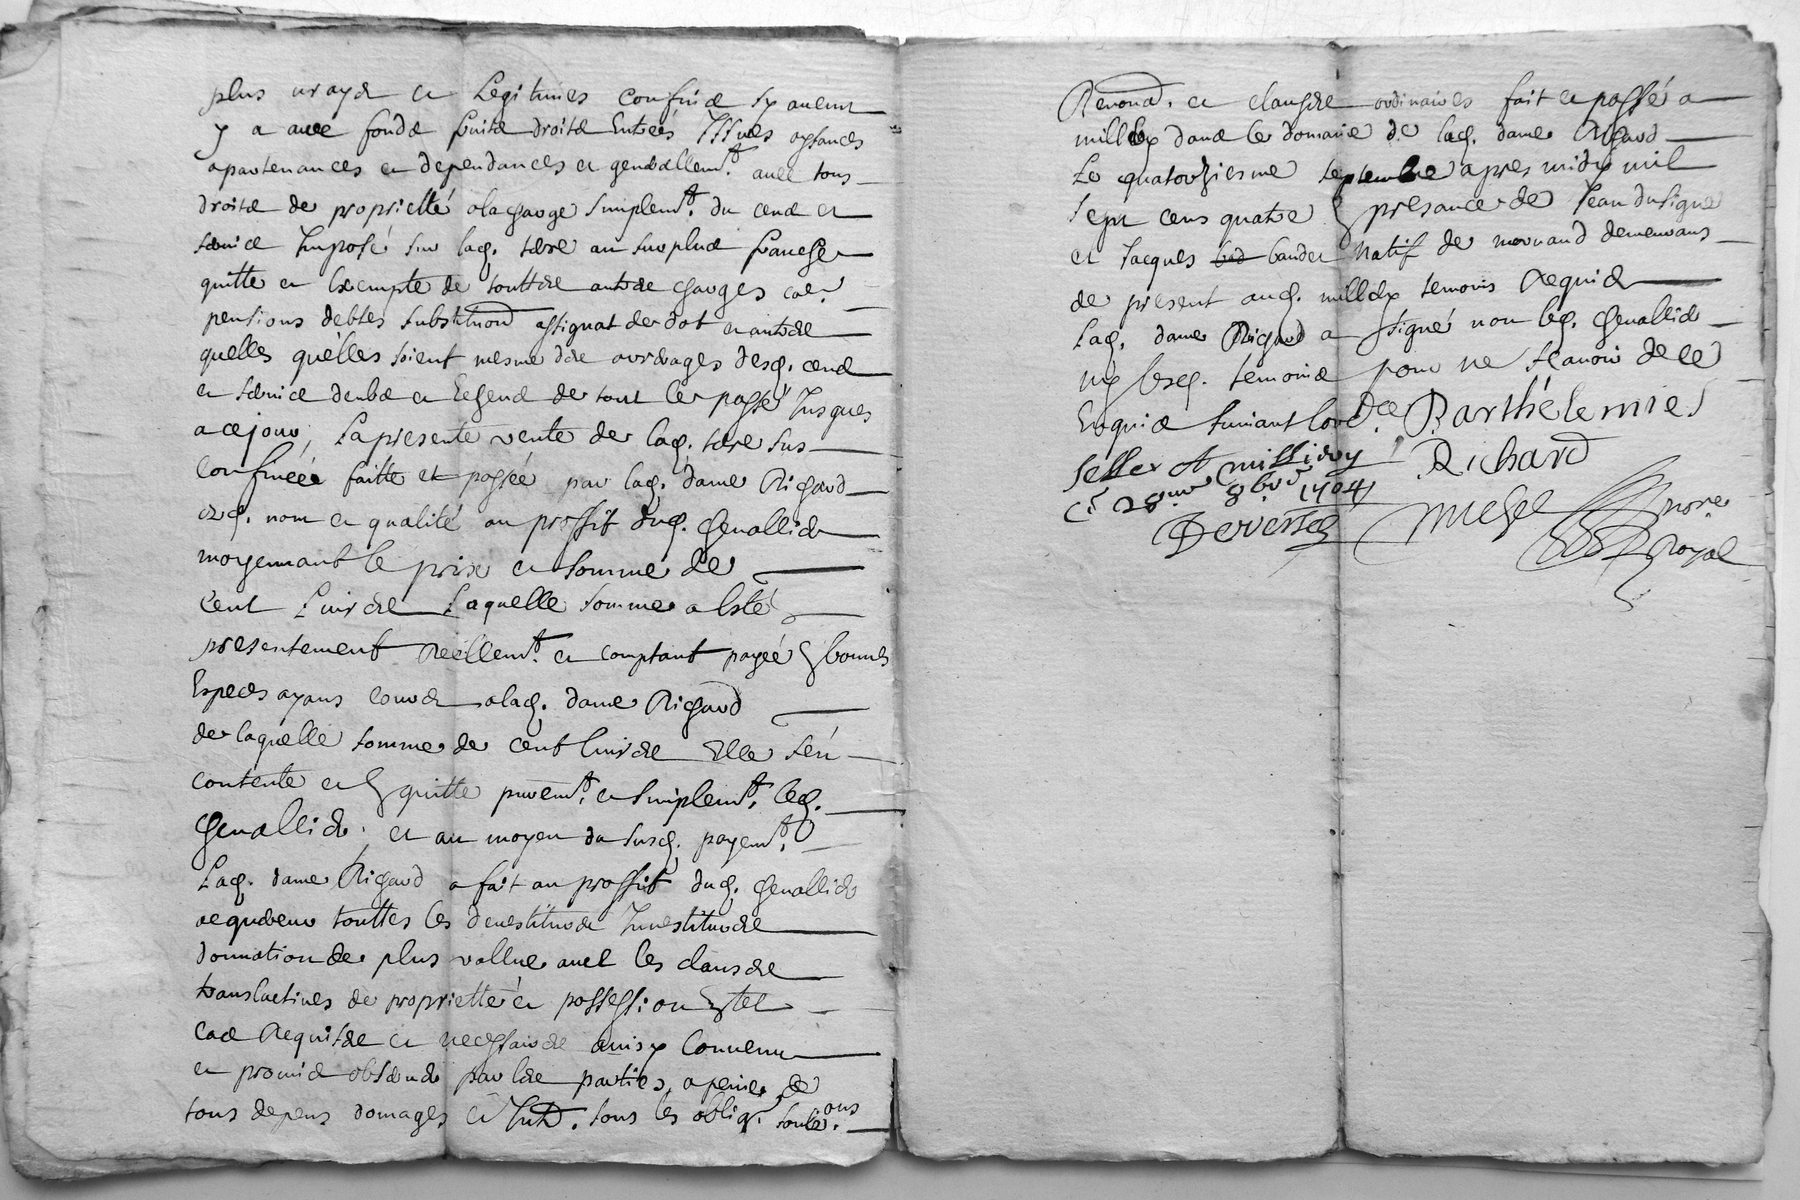 plus vrays et Legitimes confins sy aucun
y a avec fonds fruits droits Entrées Issues aysances
apartenances et dependances et generallemt. avec tous
droits de proprietté a la charge simplemt. du cens et
servis Imposé sur lad. terre au surplus franche
quitte et Exempte de touttes autres charges cas.
pensions debtes substituon assignat de dot et autres
quelles qu'elles soient mesme des arrerages desd. cens
et servis deubs et Echeus de tout le passé Jusques
a ce jour, La presente vente de lad. terre sus
Confinéee faitte et passée par lad. dame Richard
esd. nom et qualité au proffit dud. Chevallier
moyennant le prix et somme de
cent Livres Laquelle somme a Esté
presentement Réellemt. et comptant payéé en bonnes
Especes ayans cours a lad. dame Richard
de laquelle somme de cent livres Elle s'en
contente et en quitte puremt. et simplemt. led.
Chevallier, et au moyen du susd. payemt.
Lad. dame Richard a fait au proffit dud. Chevallier
acquereur touttes les devestitures Investitures
donnation de plus vallue avec les clauses
translatives de proprietté et possession en tel
cas Requises et necessaires ainsy Convenu
et promis observer par les parties, a peine de
tous depens domages et Int. sous les obligons soub.
Renond. et clauses ordinaires fait et passé a
millery dans le domaine de lad. dame Richard
Le quatorziesme septembre apres midy mil
sept cens quatre En presance de Jean
et Jacques baudet natif de mornand demeurans
de present aud. millery temoins Requis
Lad. dame Richard a signé non led. Chevallier
ny lesd. temoins pour ne scavoir de ce
Enquis suivant lord.ce Barthélemie
Richard
Sellé A millery
ce 28me 8bre 1704
Michel nore
Royal